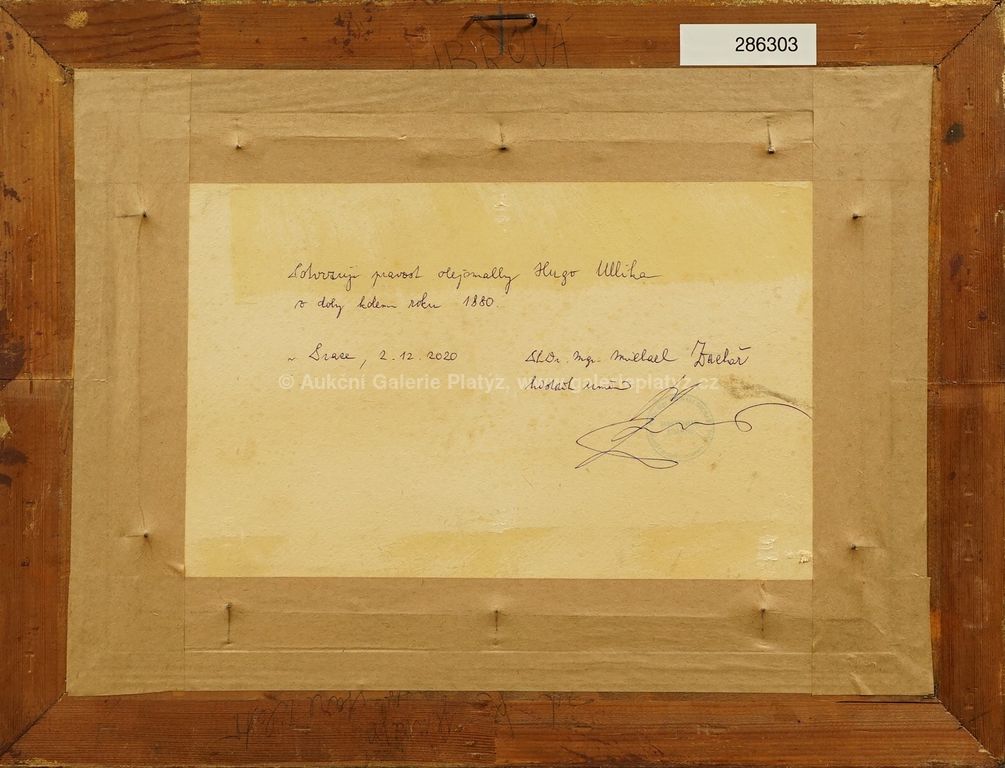 286303
Potvrzuji pravost olejomalby Hugo Ullika
z doby kolem roku 1880.
v Praze, 2.12.2020
PhDr. Mgr. Michael Zachař
© Aukční Galerie Platýz, www.galerieplatyz.cz
historik umění